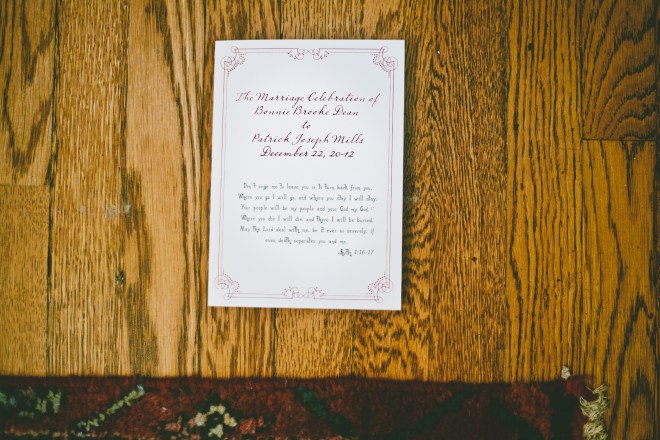 The Marriage Celebration of
Bonnie Brooke Dean
to
Patrick Joseph Mills
December 22, 2012
Don't urge me to leave you or to turn back from you.
Where you go I will go, and where you stay I will stay.
Your people will be my people and your God my God."
Where you die I will die, and there I will be buried.
May the Lord deal with me, be it ever so severely, if
even death separates you and me.
Ruth 1:16-17